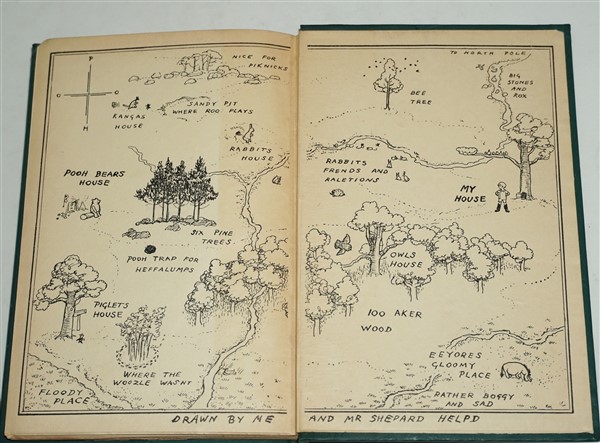 NICE FOR
PIKNICKS
P
O
O
H
KANGAS
HOUSE
SANDY PIT
WHERE ROO PLAYS
RABBITS
HOUSE
POOH BEARS
HOUSE
SIX PINE
TREES
POOH TRAP FOR
HEFFALUMPS
PIGLETS
HOUSE
WHERE THE
WOOZLE WASNT
FLOODY
PLACE
DRAWN BY ME
TO NORTH POLE
BIG
STONES
AND
ROX
BEE
TREE
RABBITS
FRENDS AND
RALETIONS
MY
HOUSE
OWLS
HOUSE
100 AKER
WOOD
EEYORES
GLOOMY
PLACE
RATHER BOGGY
AND SAD
AND MR SHEPARD HELPD